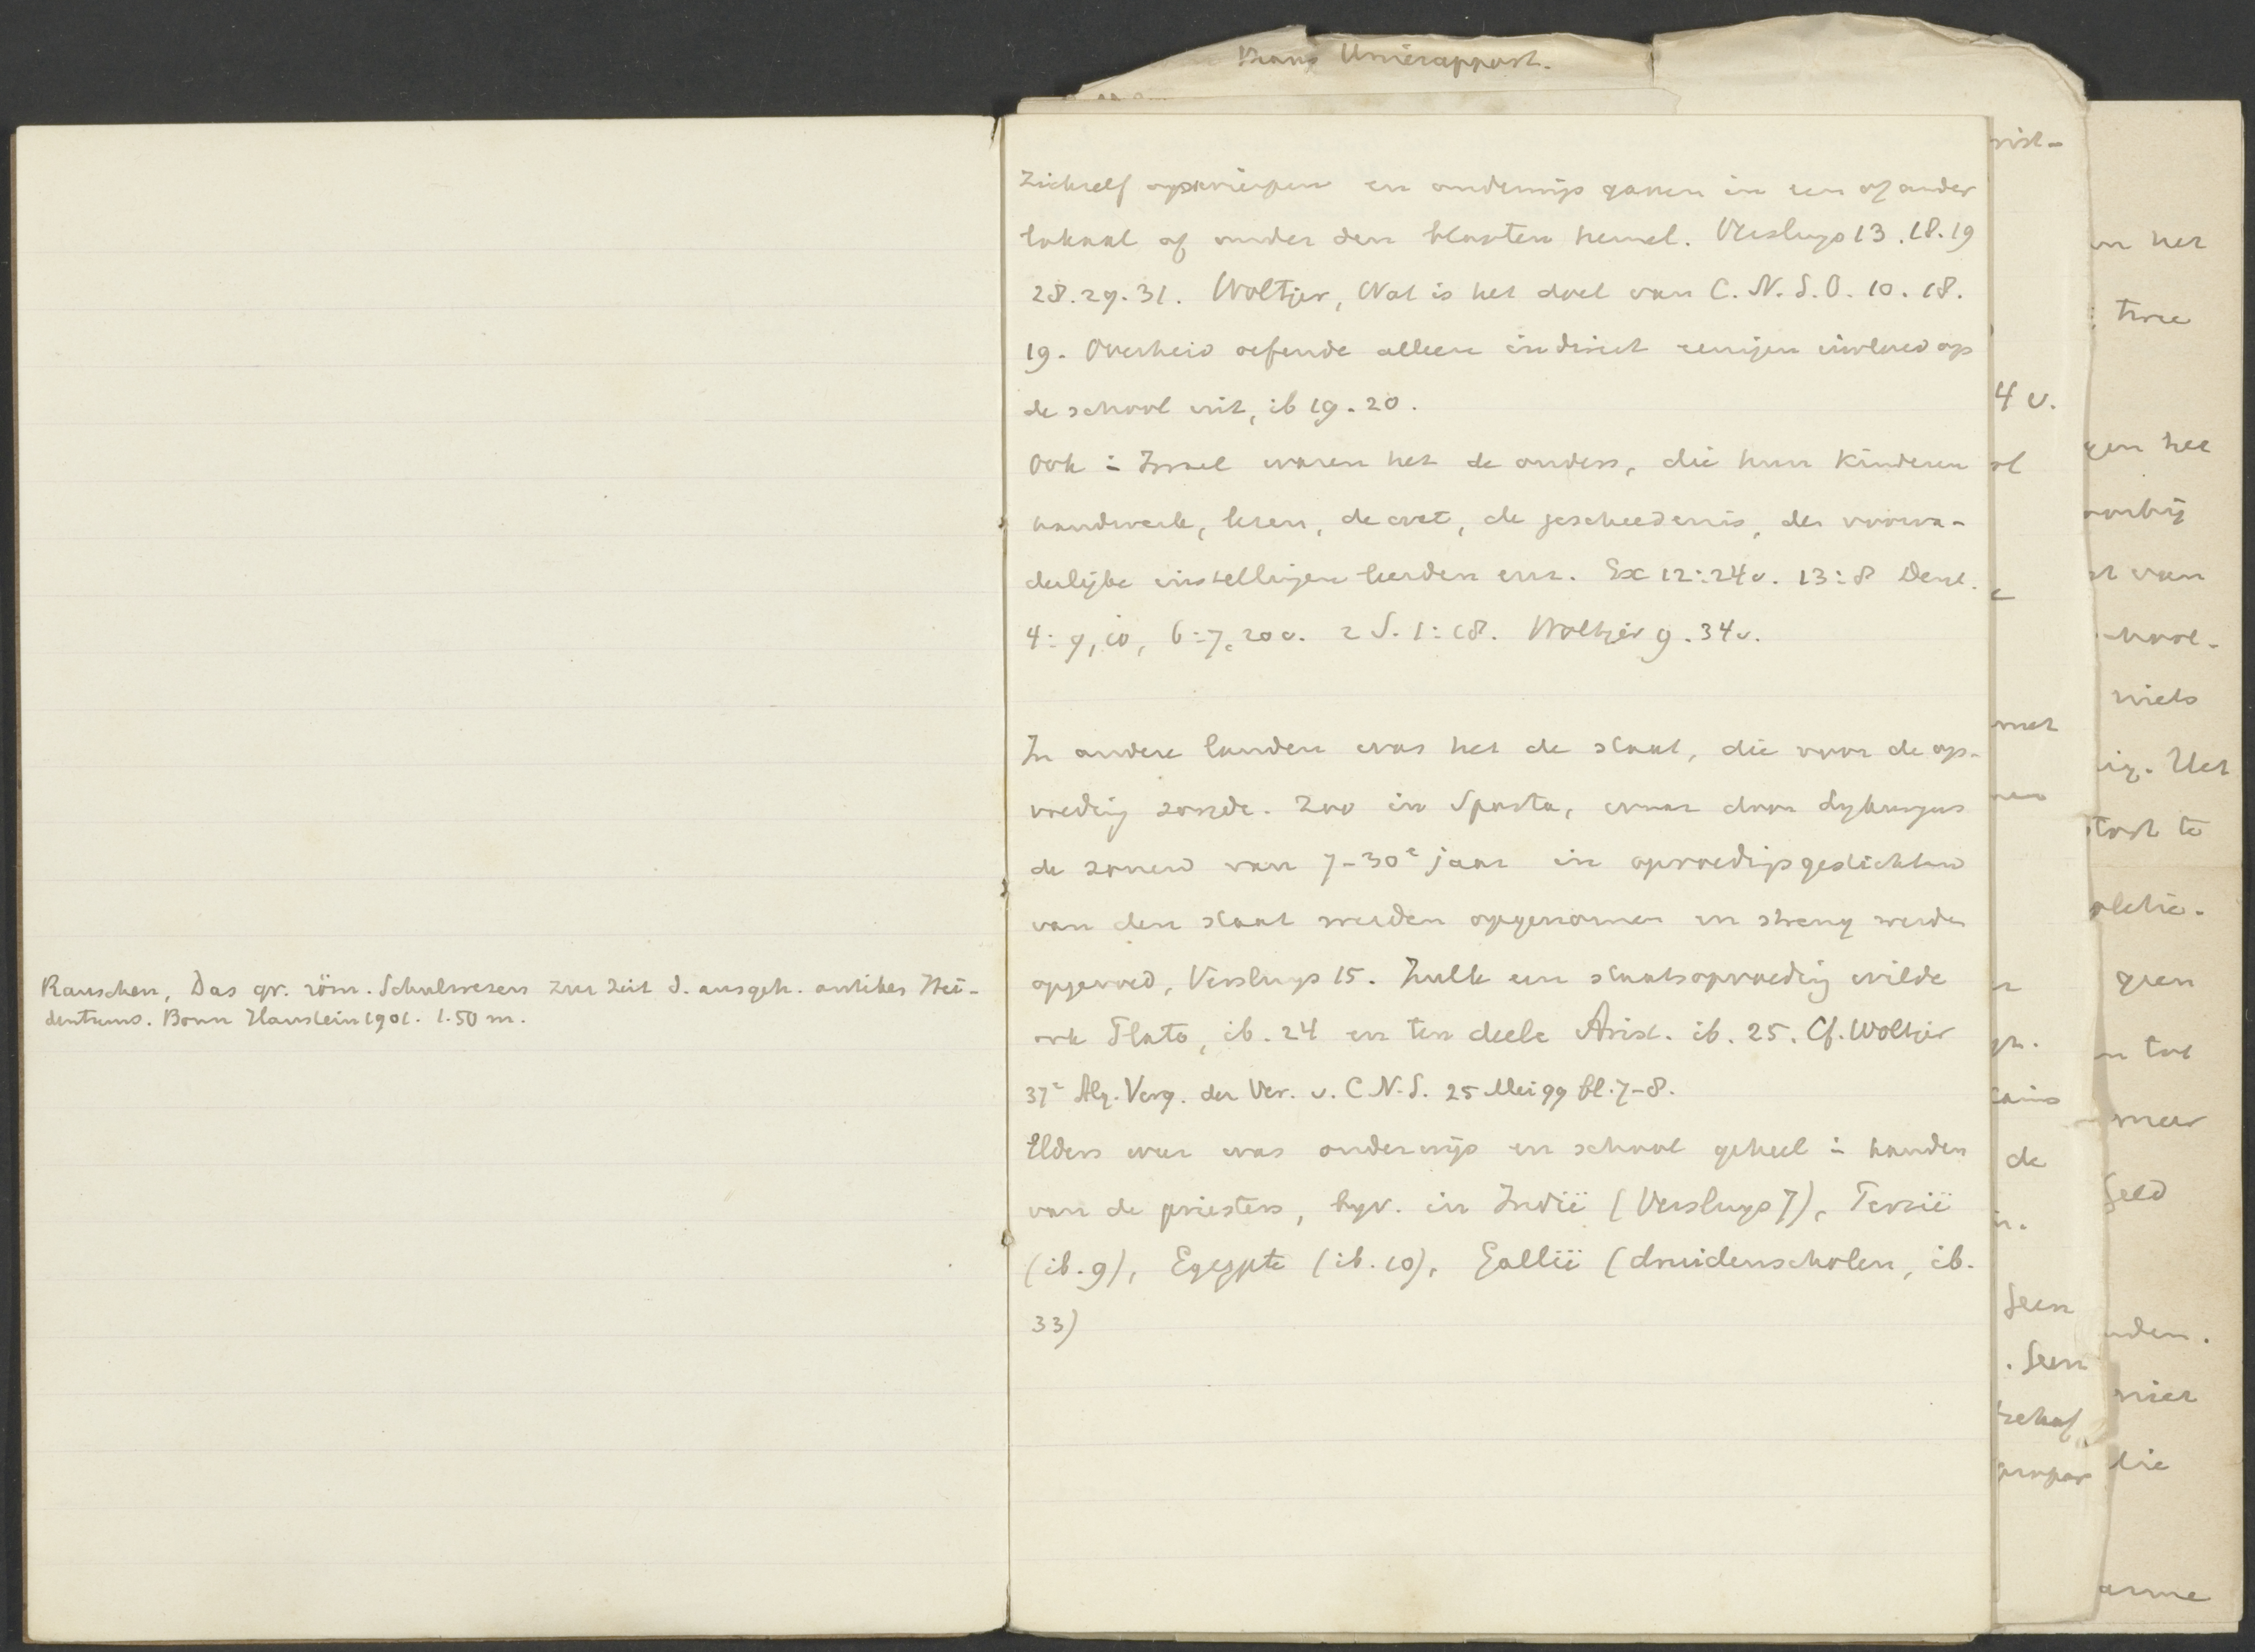 Unierapport.
Rauschen, Das gr. röm. Schulwesen zur Zeit d. ausgeh. antiken Hei-
dentums. Bonn Hanstein 1901. 1.50 m.
zichzelf opwierpen en onderwijs gaven in een of ander
lokaal of onder den blooten hemel. Versluys 13.18.19
28.29.31. Woltjer, Wat is het doel van C.N.S.O. 10.18.
19. Overheid oefende alleen indirect eenigen invloed op
de school uit, ib 19.20.
Ook in Israel waren het de ouders, die hun kinderen
handwerk, lezen, de wet, de geschiedenis, der voorva-
derlijke instellingen leerden enz. Ex 12:24v. 13:8 Deut.
4:9,10, 6:7,20v. 2 S. 1:18. Woltjer 9.34v.
In andere landen was het de staat, die voor de op-
voeding zorgde. Zoo in Sparta, waar door Lykurgus
de zonen van 7-30e jaar in opvoedingsgestichten
van den staat werden opgenomen en streng werden
opgevoed, Versluys 15. Zulk een staatsopvoeding wilde
ook Plato, ib. 24 en ten deele Arist. ib. 25. Cf. Woltjer
37e Alg. Verg. der Ver. v. C.N.S. 25 Mei 99 bl. 7-8.
Elders weer was onderwijs en school geheel in handen
van de priesters, bijv. in Indië (Versluys 7), Perzië
(ib. 9), Egypte (ib. 10), Gallië (druidenscholen, ib.
33)
4 v.
met
de
Geen
. Geen
behoef
het
twee
gen het
van
niets
Het
te
geen
tot
meer
Geld
niet
die
arme